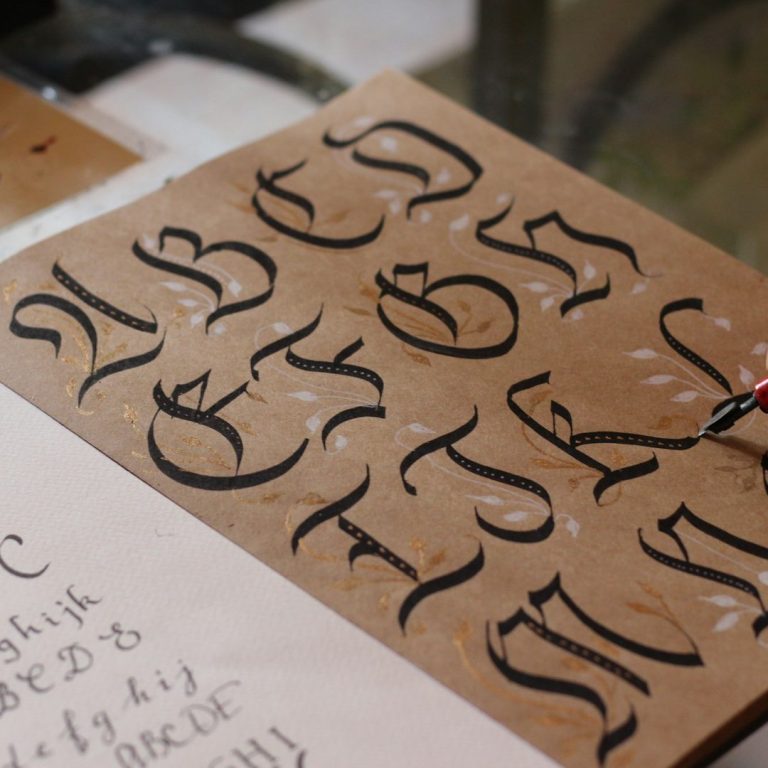 A B C D
E F G H
I J K L
M N
C
g h i j k
B C D E
e f g h i j
A B C D E
G H I